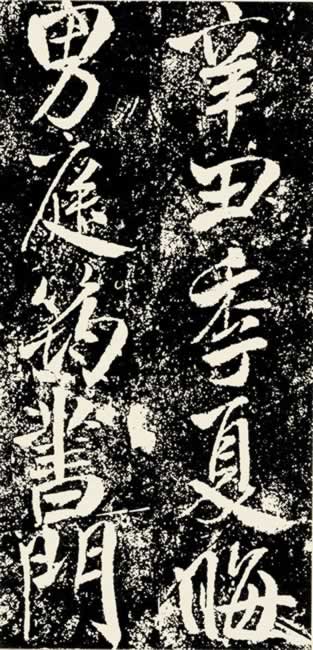 辛丑季夏晦
男庭筠書門